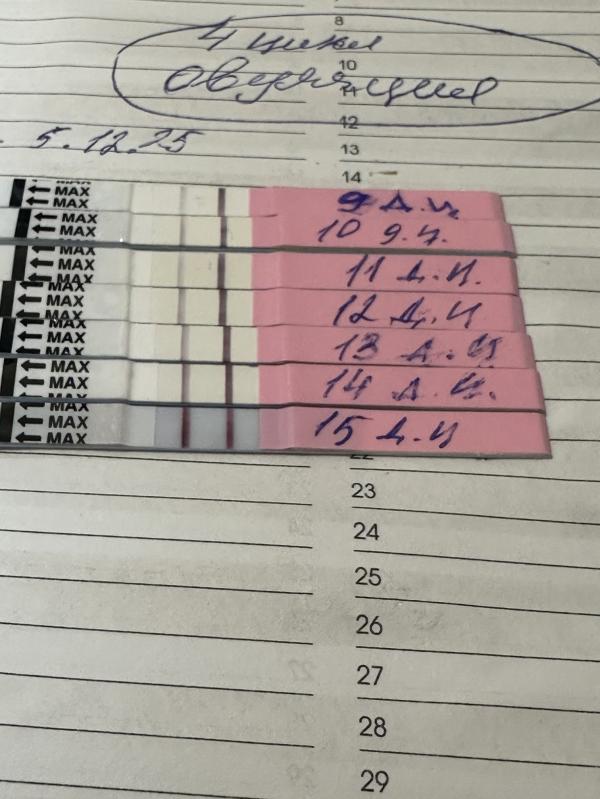 8
4 цикл
10
овуляция
11
12
5.12.25
13
14
MAX
MAX 9 д.ц.
MAX
MAX 10 д.ц.
MAX
MAX 11 д.ц.
MAX
MAX 12 д.ц
MAX
MAX 13 д.ц
MAX
MAX 14 д.ц.
MAX
MAX 15 д.ц
22
23
24
25
26
27
28
29